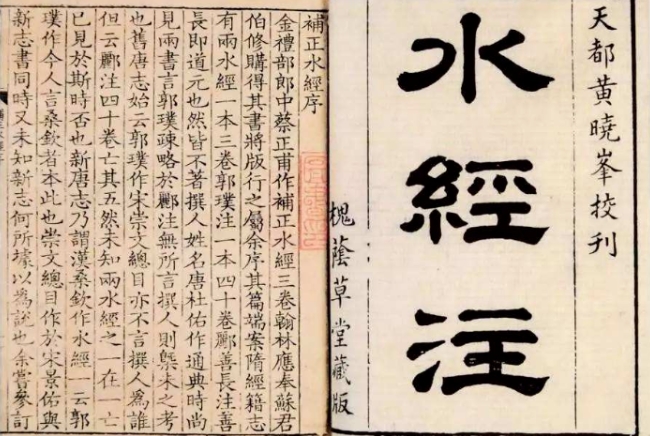 天都黄曉峯挍刊
水經注
槐蔭草堂藏版
補正水經序
金禮部郎中蔡正甫作補正水經三卷翰林應奉蘇君
伯修購得其書將版行之屬余序其篇端案隋經籍志
有兩水經一本三卷郭璞注一本四十卷酈善長注善
長即道元也然皆不著撰人姓名唐杜佑作通典時尚
見兩書言郭璞疎略於酈注無所言撰人則槩未之考
也舊唐志始云郭璞作宋崇文總目亦不言撰人為誰
但云酈注四十卷亡其五然未知兩水經之一在一亡
已見於斯時否也新唐志乃謂漢桑欽作水經一云郭
璞作今人言桑欽者本此也崇文總目作於宋景佑與
新志書同時又未知新志何所據以爲說也余嘗參訂